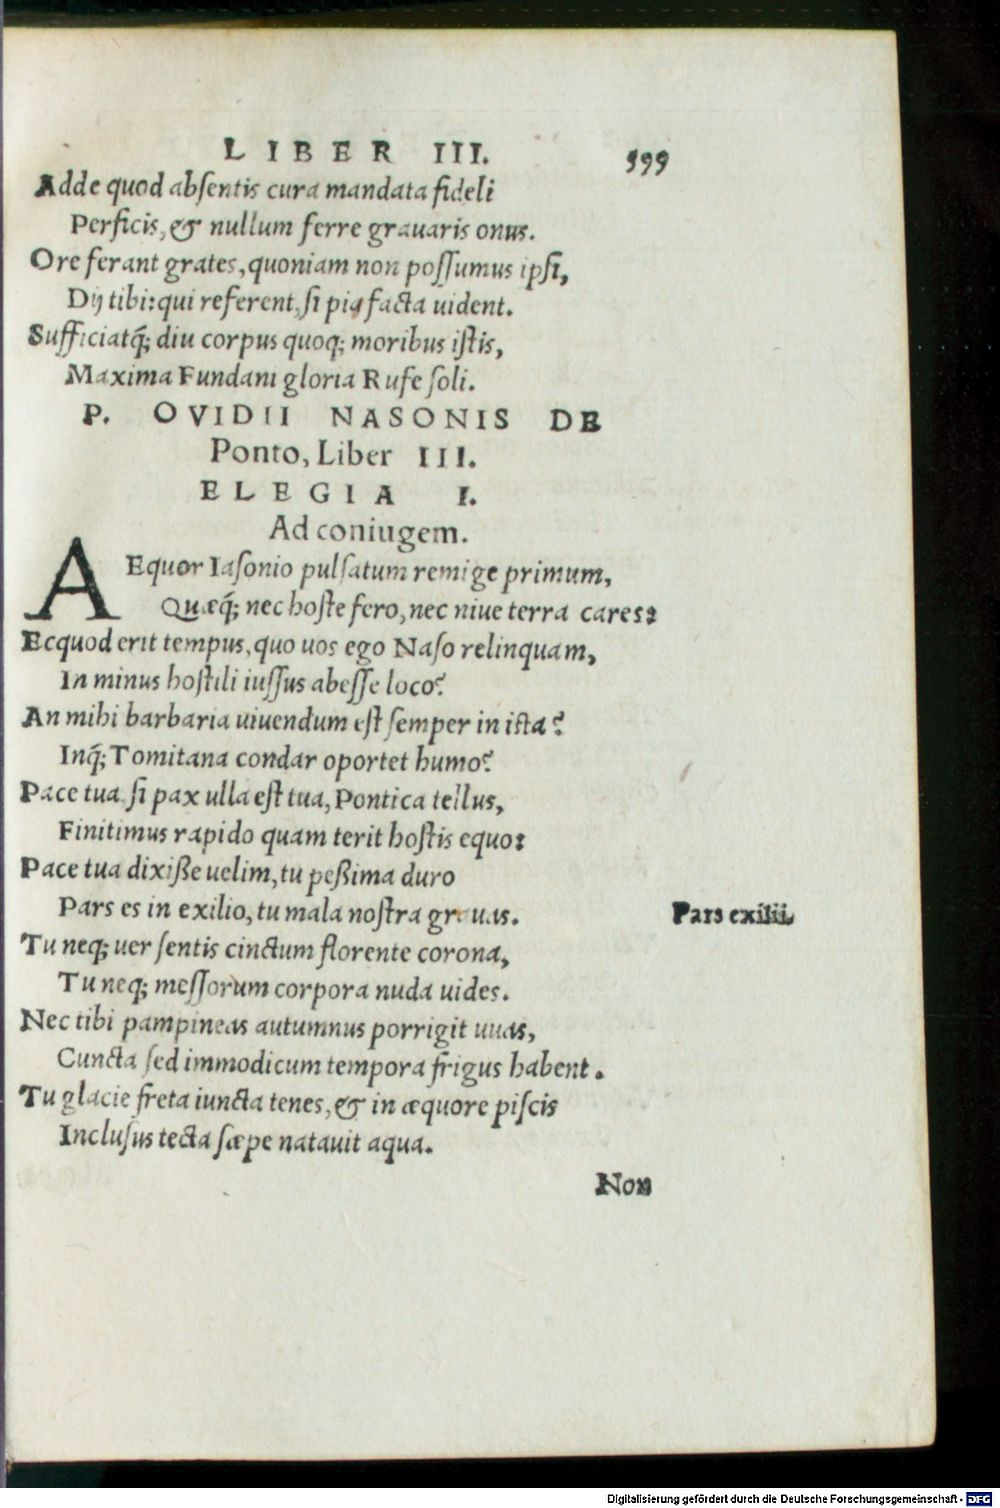 LIBER III. 599
Adde quod absentis cura mandata fideli
Perficis, & nullum ferre grauaris onus.
Ore ferant grates, quoniam non possumus ipsi,
Dij tibi: qui referent, si pia facta uident.
Sufficiatq́; diu corpus quoq; moribus istis,
Maxima Fundani gloria Rufe soli.
P. OVIDII NASONIS DE
Ponto, Liber III.
ELEGIA I.
Ad coniugem.
AEquor Iasonio pulsatum remige primum,
Quæq́; nec hoste fero, nec niue terra cares:
Ecquod erit tempus, quo uos ego Naso relinquam,
In minus hostili iussus abesse loco?
An mihi barbaria uiuendum est semper in ista?
Inq́; Tomitana condar oportet humo?
Pace tua si pax ulla est tua, Pontica tellus,
Finitimus rapido quam terit hostis equo:
Pace tua dixiße uelim, tu peßima duro
Pars es in exilio, tu mala nostra grauas.
Pars exilii.
Tu neq; uer sentis cinctum florente corona,
Tu neq; messorum corpora nuda uides.
Nec tibi pampineas autumnus porrigit uuas,
Cuncta sed immodicum tempora frigus habent.
Tu glacie freta iuncta tenes, & in æquore piscis
Inclusus tecta sæpe natauit aqua.
Non
Digitalisierung gefördert durch die Deutsche Forschungsgemeinschaft - DFG